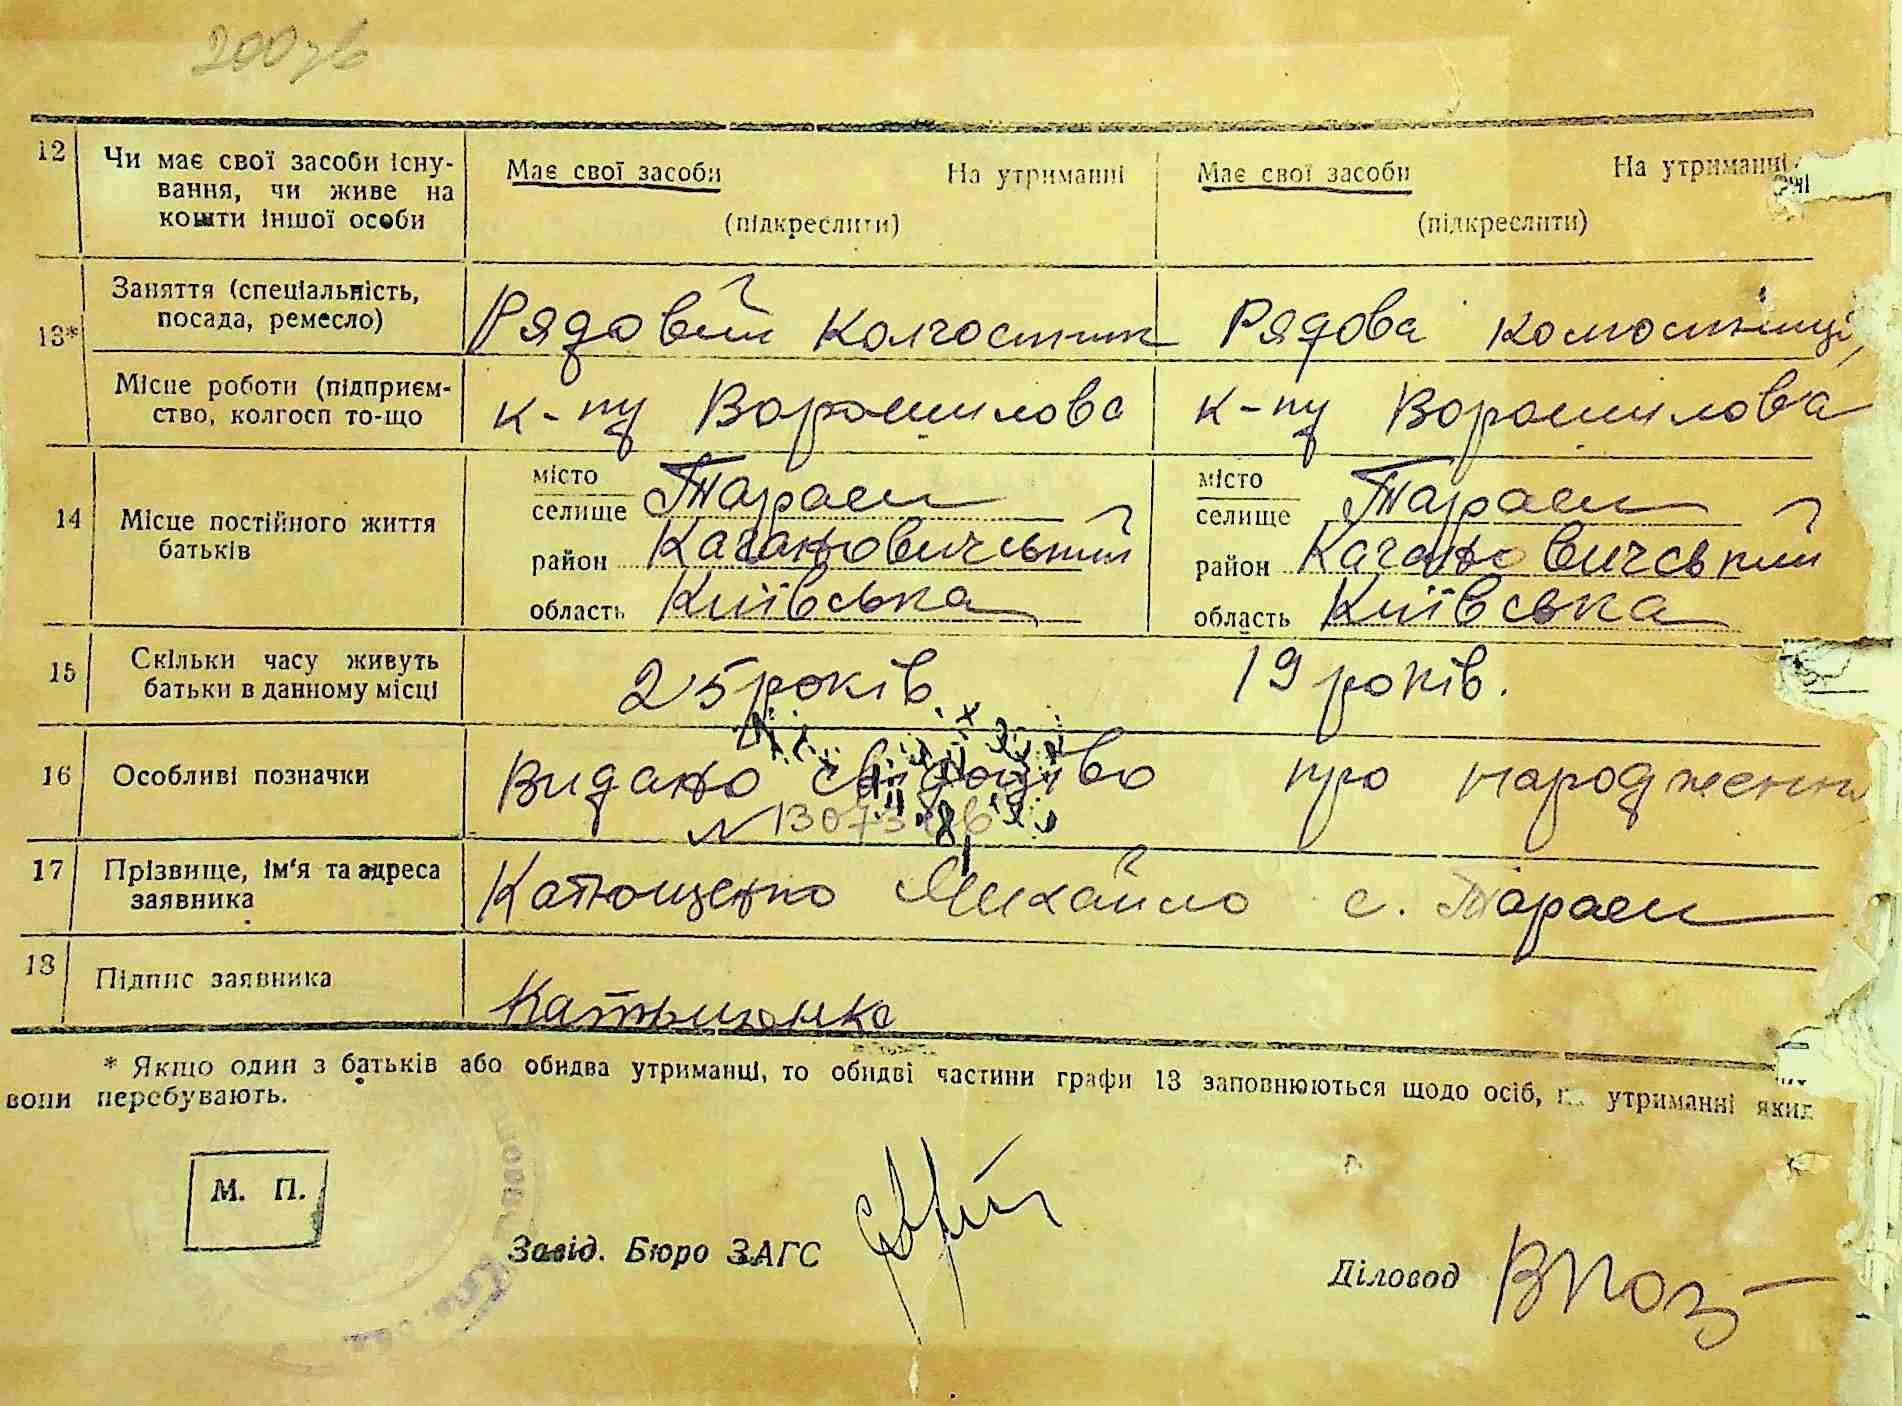 12 Чи має свої засоби існу-
вання, чи живе на
кошти іншої особи
Має свої засоби На утриманні
(підкреслити)
Має свої засоби На утриманні
(підкреслити)
13* Заняття (спеціальність,
посада, ремесло)
Рядовий колгоспник
Рядова колгоспниця
Місце роботи (підприєм-
ство, колгосп то-що
к-пу Ворошилова
к-пу Ворошилова
14 Місце постійного життя
батьків
місто
селище Тараси
район Кагановичський
область Київська
місто
селище Тараси
район Кагановичський
область Київська
15 Скільки часу живуть
батьки в данному місці
25 років
19 років.
16 Особливі позначки
Видано свідоцтво про народження
№
17 Прізвище, ім'я та адреса
заявника
Катющенко Михайло с. Тараси
18 Підпис заявника
* Якщо один з батьків або обидва утриманці, то обидві частини графи 13 заповнюються щодо осіб, утриманні яких
вони перебувають.
М. П.
Завід. Бюро ЗАГС
Діловод